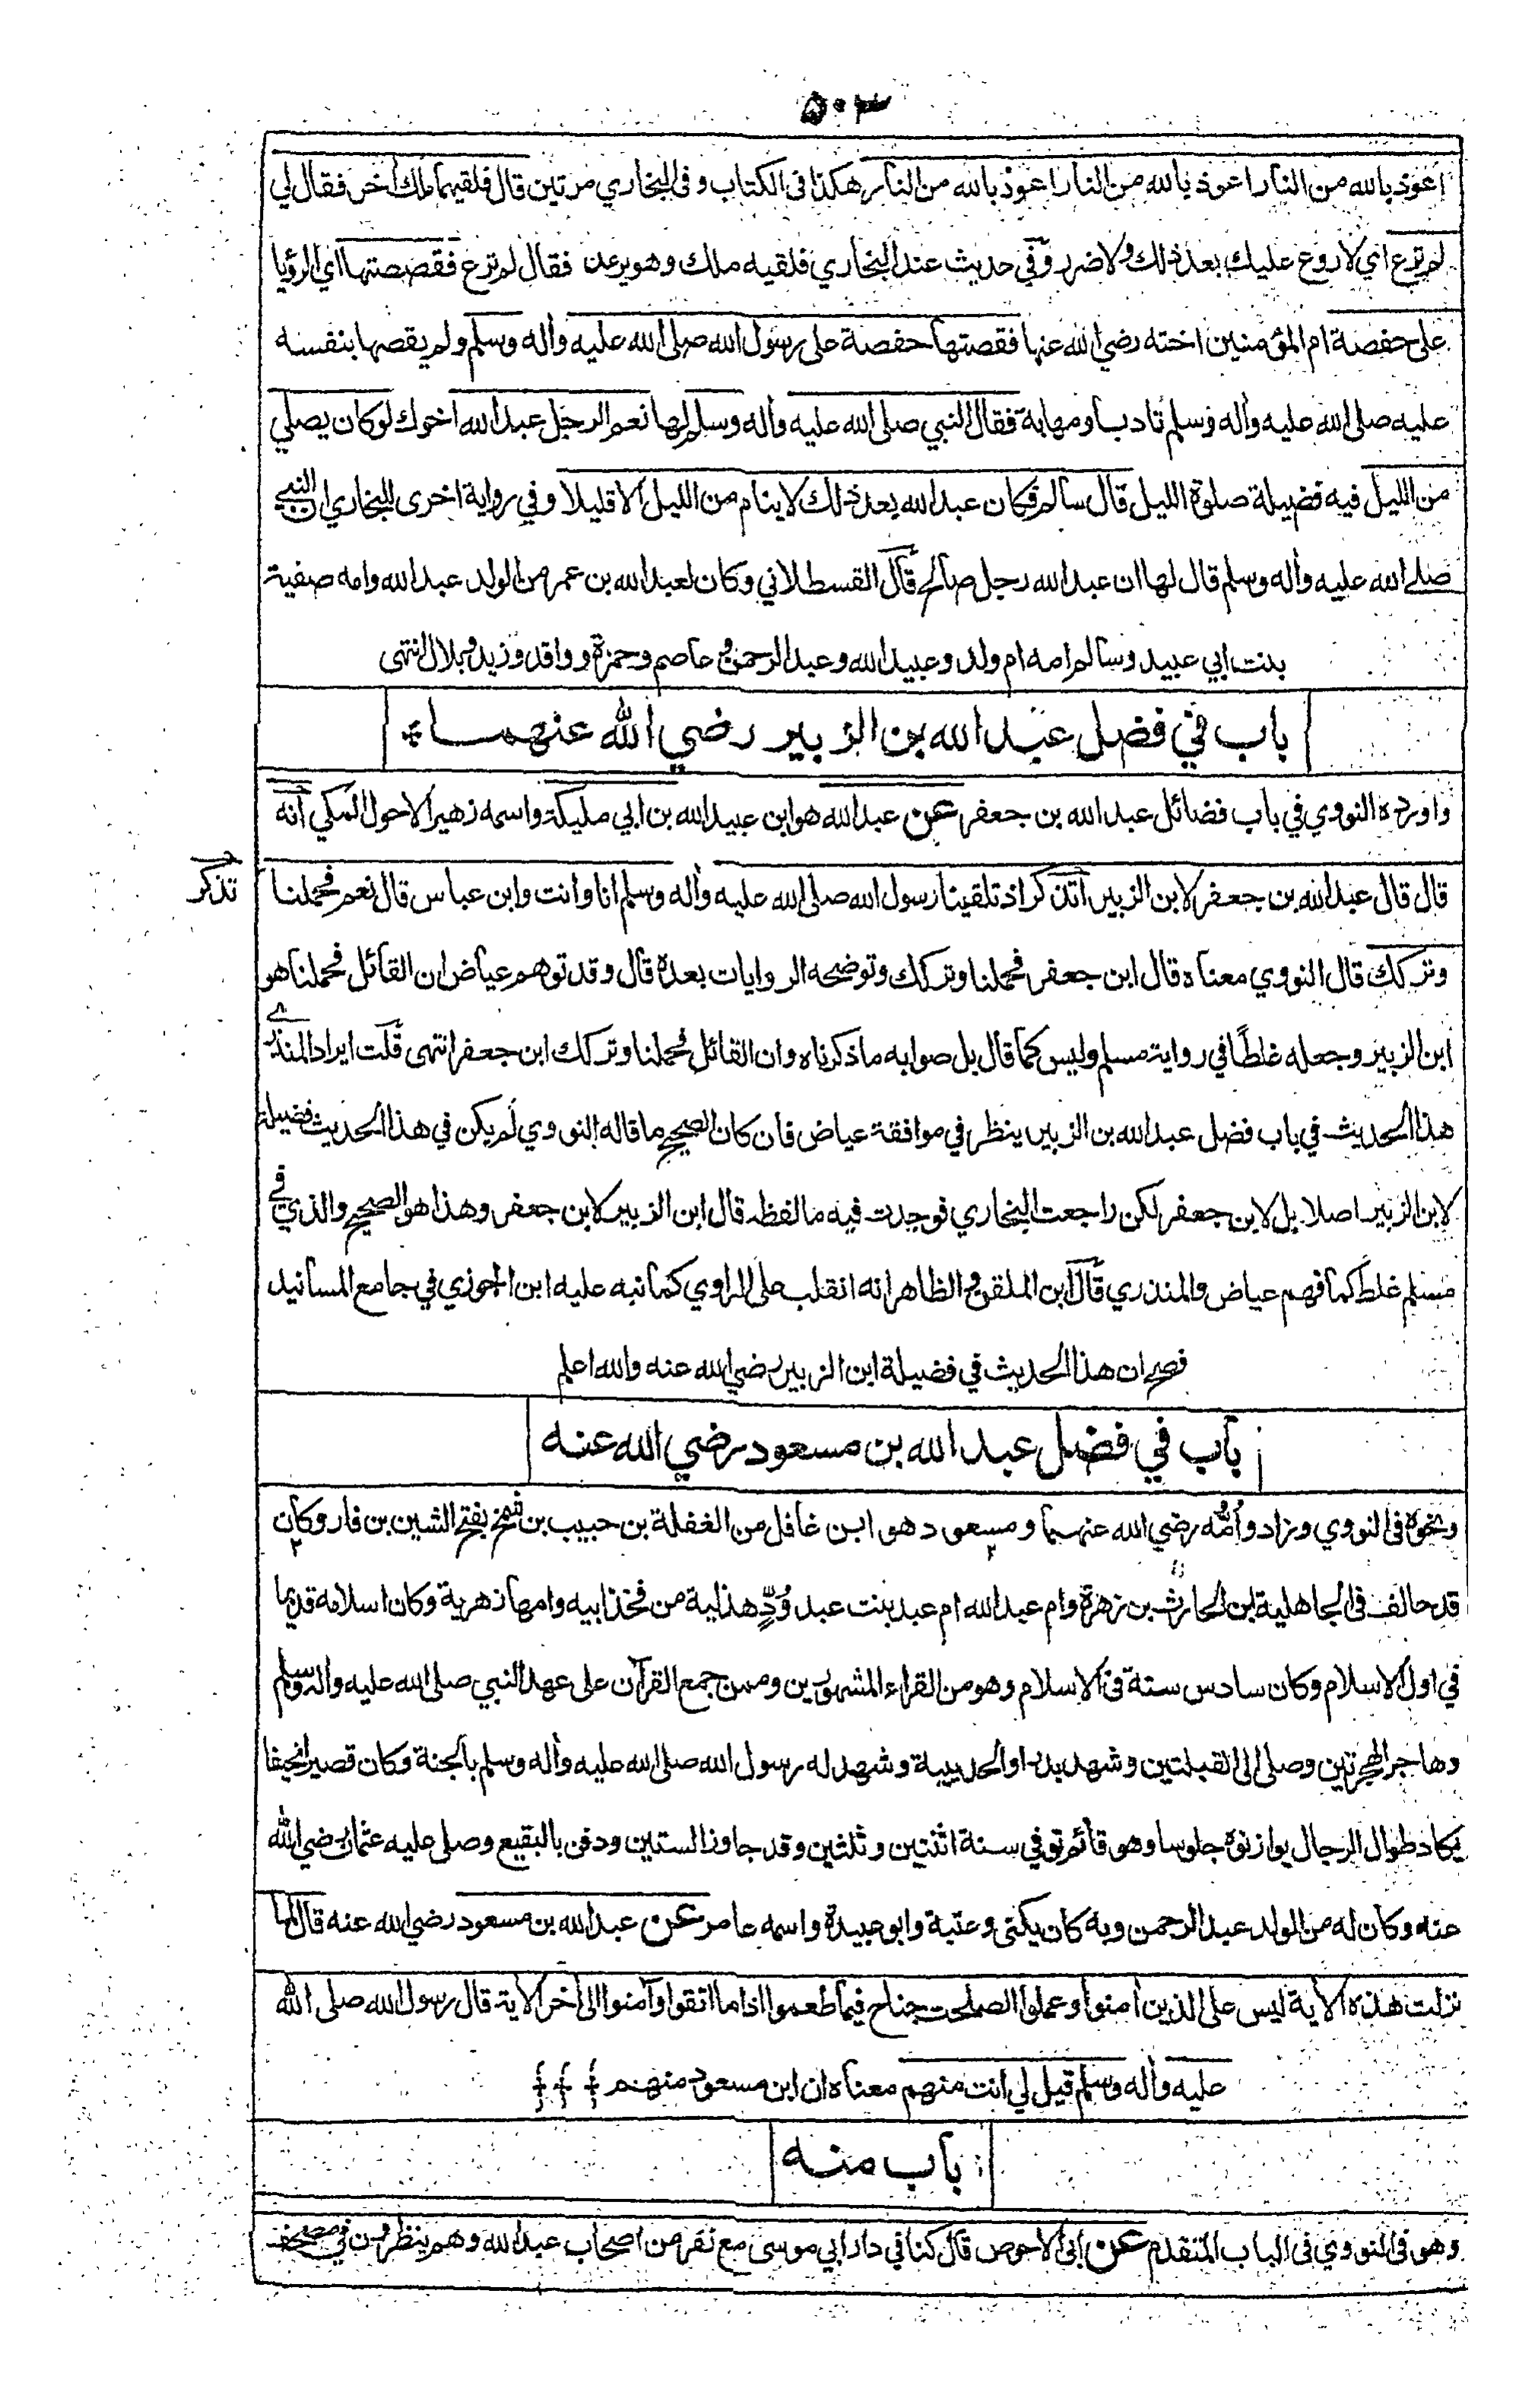 ٥٠٣
اعوذ بالله من النار اعوذ بالله من النار اعوذ بالله من النار هكذا في الكتاب و في البخاري مرتين قال فلقيهما ملك أخر فقال لي
لم ترع اي لا روع عليك بعد ذلك ولا ضرر و في حديث عند البخاري فلقيه ملك وهو يرعد فقال لم ترع فقصصتها اي الرؤيا
على حفصة ام المؤمنين اخته رضي الله عنها فقصتها حفصة على رسول الله صلى الله عليه وأله وسلم ولم يقصها بنفسه
عليه صلى الله عليه وأله وسلم تادبا ومهابة فقال النبي صلى الله عليه وأله وسلم لها نعم الرجل عبد الله اخوك لو كان يصلي
من الليل فيه فضيلة صلوة الليل قال سالم فكان عبد الله بعد ذلك لا ينام من الليل الا قليلا وفي رواية اخرى للبخاري ان النبي
صلى الله عليه وأله وسلم قال لها ان عبد الله رجل صالح قال القسطلاني وكان لعبد الله بن عمر من الولد عبد الله وامه صفية
بنت ابي عبيد وسالم امه ام ولد وعبيد الله وعبد الرحمن و عاصم وحمزة وواقد وزيد وبلال انتهى
باب في فضل عبد الله بن الزبير رضي الله عنهما
واورده النووي في باب فضائل عبد الله بن جعفر عن عبد الله هو ابن عبيد الله بن ابي مليكة واسمه زهير الاحول المكي انه
قال قال عبد الله بن جعفر لابن الزبير أتذكر اذ تلقينا رسول الله صلى الله عليه وأله وسلم انا وانت وابن عباس قال نعم فحملنا
تذكر
وتركك قال النووي معناه قال ابن جعفر فحملنا وتركك وتوضحه الروايات بعده قال وقد توهم عياض ان القائل فحملنا هو
ابن الزبير وجعله غلطًا في رواية مسلم وليس كما قال بل صوابه ما ذكرناه وان القائل فحملنا وتركك ابن جعفر انتهى قلت ايراد المنذري
هذا الحديث في باب فضل عبد الله بن الزبير ينظر في موافقة عياض فان كان الصحيح ما قاله النووي لم يكن في هذا الحديث فضيلة
لابن الزبير اصلا بل لابن جعفر لكن راجعت البخاري فوجدت فيه ما لفظه قال ابن الزبير لابن جعفر وهذا هو الصحيح والذي في
مسلم غلط كما فهم عياض والمنذري قال ابن الملقن و الظاهر انه انقلب على الراوي كما نبه عليه ابن الجوزي في جامع المسانيد
فصح ان هذا الحديث في فضيلة ابن الزبير رضي الله عنه والله اعلم
باب في فضل عبد الله بن مسعود رضي الله عنه
ونحوه في النووي وزاد وأمه رضي الله عنهما ومسعود هو ابن غافل من الغفلة بن حبيب بن شمخ بفتح الشين بن فار وكان
قد حالف في الجاهلية ابن الحارث بن زهرة وام عبد الله ام عبد بنت عبد وُدٍّ هذلية من فخذ ابيه وامها زهرية وكان اسلامه قديما
في اول الاسلام وكان سادس ستة في الاسلام وهو من القراء المشهورين وممن جمع القرآن على عهد النبي صلى الله عليه وأله وسلم
وهاجر الهجرتين وصلى الى القبلتين وشهد بدرا والحديبية وشهد له رسول الله صلى الله عليه وأله وسلم بالجنة وكان قصيرا نحيفا
يكاد طوال الرجال يوازنوه جلوسا وهو قائم توفي سنة اثنتين وثلثين وقد جاوز الستين ودفن بالبقيع وصلى عليه عثمان رضي الله
عنه وكان له من الولد عبد الرحمن وبه كان يكنى وعتبة وابو عبيدة واسمه عامر عن عبد الله بن مسعود رضي الله عنه قال لما
نزلت هذه الأية ليس على الذين أمنوا وعملوا الصلحت جناح فيما طعموا اذا ما اتقوا وآمنوا الى أخر الاية قال رسول الله صلى الله
عليه وأله وسلم قيل لي انت منهم معناه ان ابن مسعود منهم
باب منه
وهو في النووي في الباب المتقدم عن ابي الاحوص قال كنا في دار ابي موسى مع نفر من اصحاب عبد الله وهم ينظرون في مصحف